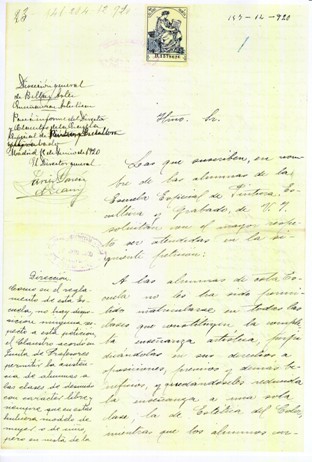 153-12-920
Dirección general
de Bellas Artes
Enseñanzas Artísticas
Pase á informe del Director
y Claustro de la Escuela
Especial de Pintura, Escultura
y Grabado
Madrid de Junio 1920
El Director general
Ilmo. Sr.
Las que suscriben, en nom-
bre de las alumnas de la
Escuela Especial de Pintura, Es-
cultura y Grabado, de V. I.
solicitan con el mayor respe-
to ser atendidas en la si-
guiente petición:
Dirección
Como en el regla-
mento de esta Es-
cuela, no hay dispo-
sición ninguna res-
pecto á esta petición,
el Claustro acordó en
Junta de Profesores
permitir la asisten-
cia de alumnas á
las clases de desnudo
con carácter libre,
siempre que en estas
hubiera modelo de
mujer o de niño,
pero en vista de la
A las alumnas de esta Es-
cuela no les ha sido permi-
tido matricularse en todas las
clases que constituyen la comple-
ta enseñanza artística, perju-
dicándolas en sus derechos a
oposiciones, premios y demás be-
neficios, y quedándoles reducida
la enseñanza a una sola
clase, la de Estética del Color,
mientras que los alumnos